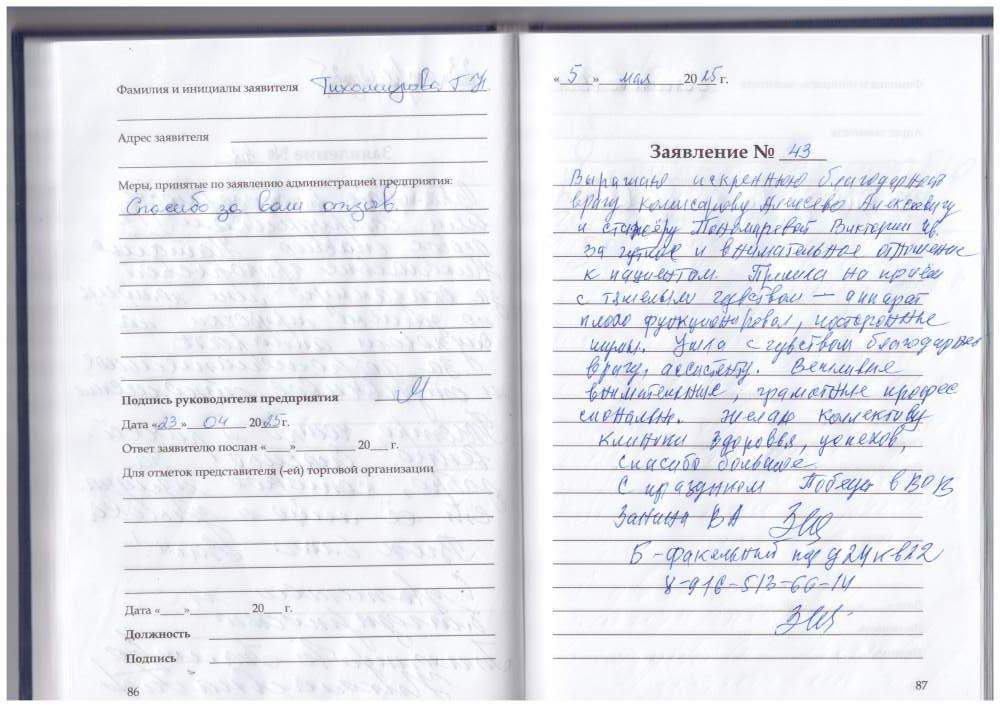 Фамилия и инициалы заявителя Тихомирова Г Н.
Адрес заявителя
Меры, принятые по заявлению администрацией предприятия:
Спасибо за ваш отзыв.
Подпись руководителя предприятия
Дата «23» 04 2025 г.
Ответ заявителю послан «____»__________ 20___ г.
Для отметок представителя (-ей) торговой организации
Дата «____»__________ 20___ г.
Должность
Подпись
86
« 5 » мая 2025 г.
Заявление № 43
Выражаю искреннюю благодарность
врачу Комиссарову Алексею Алексеевичу
и Пономаревой Виктории
за чуткое и внимательное отношение
к пациентам. Пришла на прием
с тяжелым чувством — аппарат
плохо функционировал, посторонние
шумы. Ушла с чувством благодарности
врачу, ассистенту. Вежливые
внимательные, грамотные профес
сионалы. Желаю коллективу
клиники здоровья, успехов,
спасибо большое.
С праздником Победы в ВОВ
Занина ВА
Б-факельный пер д 24 кв 22
8-916-513-60-14
87